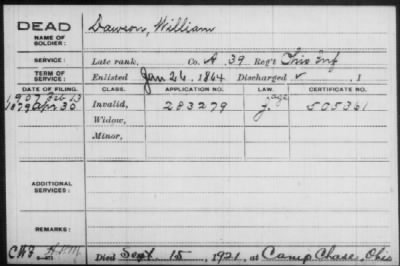 DEAD
NAME OF SOLDIER:
Dawson, William
SERVICE: Late rank, Co. A, 39 Reg't Ohio Inf
TERM OF SERVICE: Enlisted Jan 26, 1864 Discharged ✓, 1
DATE OF FILING. CLASS. APPLICATION NO. LAW. CERTIFICATE NO.
1907 Feb 13 age
1879 Apr 30 Invalid, 283279 505361
Widow,
Minor,
ADDITIONAL SERVICES:
REMARKS:
Died Sept 15, 1921, at Camp Chase, Ohio